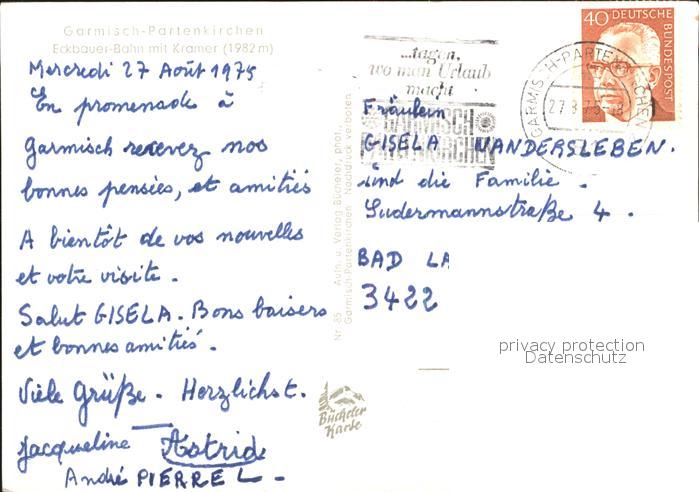 Garmisch-Partenkirchen
Eckbauer-Bahn mit Kramer (1982 m)
Mercredi 27 Août 1975
En promenade à
Garmisch recevez nos
bonnes pensées, et amitiés
A bientôt de vos nouvelles
et votre visite.
Salut GISELA. Bons baisers
et bonnes amitiés.
Viele Grüße. Herzlichst.
Jacqueline Astrid
André PIERREL
Nr. 85 Aufn. u. Verlag Bücheler, phot.
Garmisch-Partenkirchen Nachdruck verboten
Bücheler
Karte
...tagen,
wo man Urlaub
macht
GARMISCH
PARTENKIRCHEN
GARMISCH-PARTENKIRCHEN
27.8.75
40 DEUTSCHE
BUNDESPOST
Fräulein
GISELA WANDERSLEBEN.
und die Familie.
Sudermannstraße 4.
BAD LA
3422
privacy protection
Datenschutz